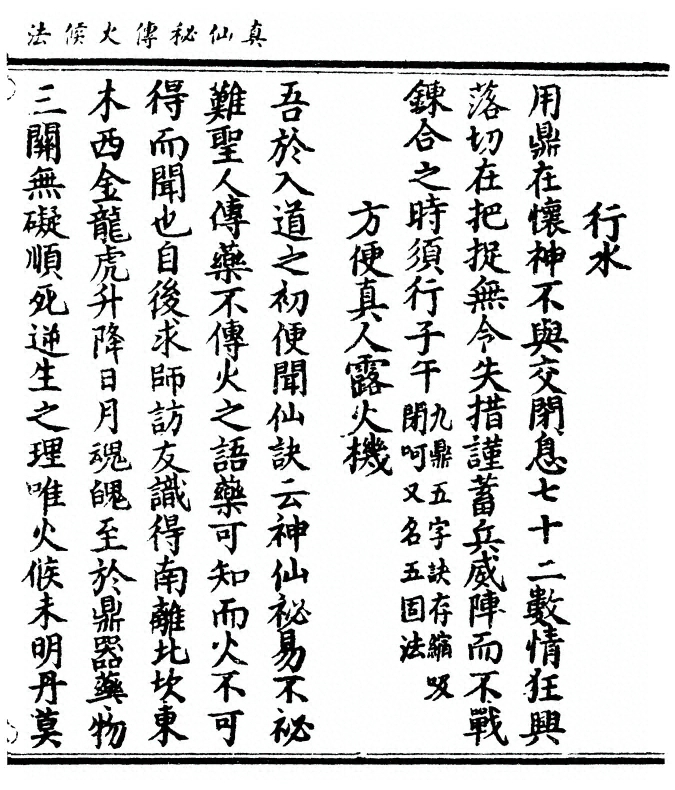 真仙秘傳火候法
行水
用鼎在懷神不與交閉息七十二數情狂興
落切在把捉無令失措謹蓄兵威陣而不戰
鍊合之時須行子午九鼎五字訣存縮吸
閉呵又名五固法
方便真人露火機
吾於入道之初便聞仙訣云神仙祕易不祕
難聖人傳藥不傳火之語藥可知而火不可
得而聞也自後求師訪友識得南離北坎東
木西金龍虎升降日月魂魄至於鼎器藥物
三關無礙順死逆生之理唯火候未明丹莫